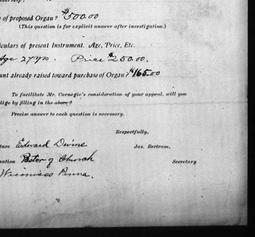 of proposed Organ? $500.00
(This question is for explicit answer after investigation.)
culars of present Instrument. Age, Price, Etc.
Age 27 yrs. Price $250.00
unt already raised toward purchase of Organ? $165.00
To facilitate Mr. Carnegie's consideration of your appeal, will you
lige by filling in the above?
Precise answer to each question is necessary.
Respectfully,
ture Edward
Jas. Bertram,
ation Pastor of Church
Secretary
Penna.